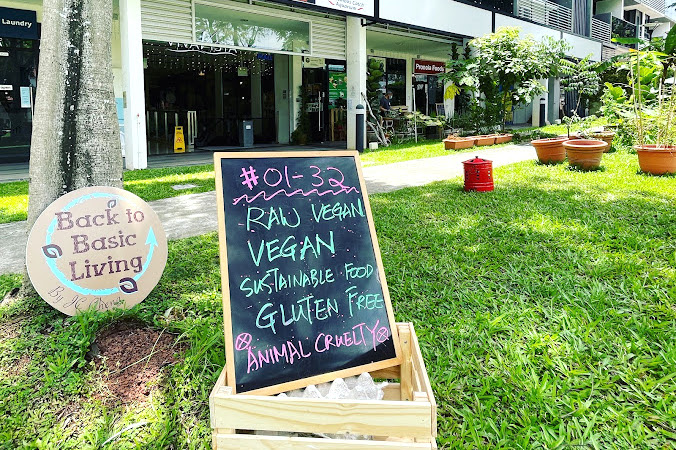 Laundry
Pronola Foods
Back to
Basic
Living
#01-32
RAW VEGAN
VEGAN
SUSTAINABLE FOOD
GLUTEN FREE
ⓧ ANIMAL CRUELTY ⓧ